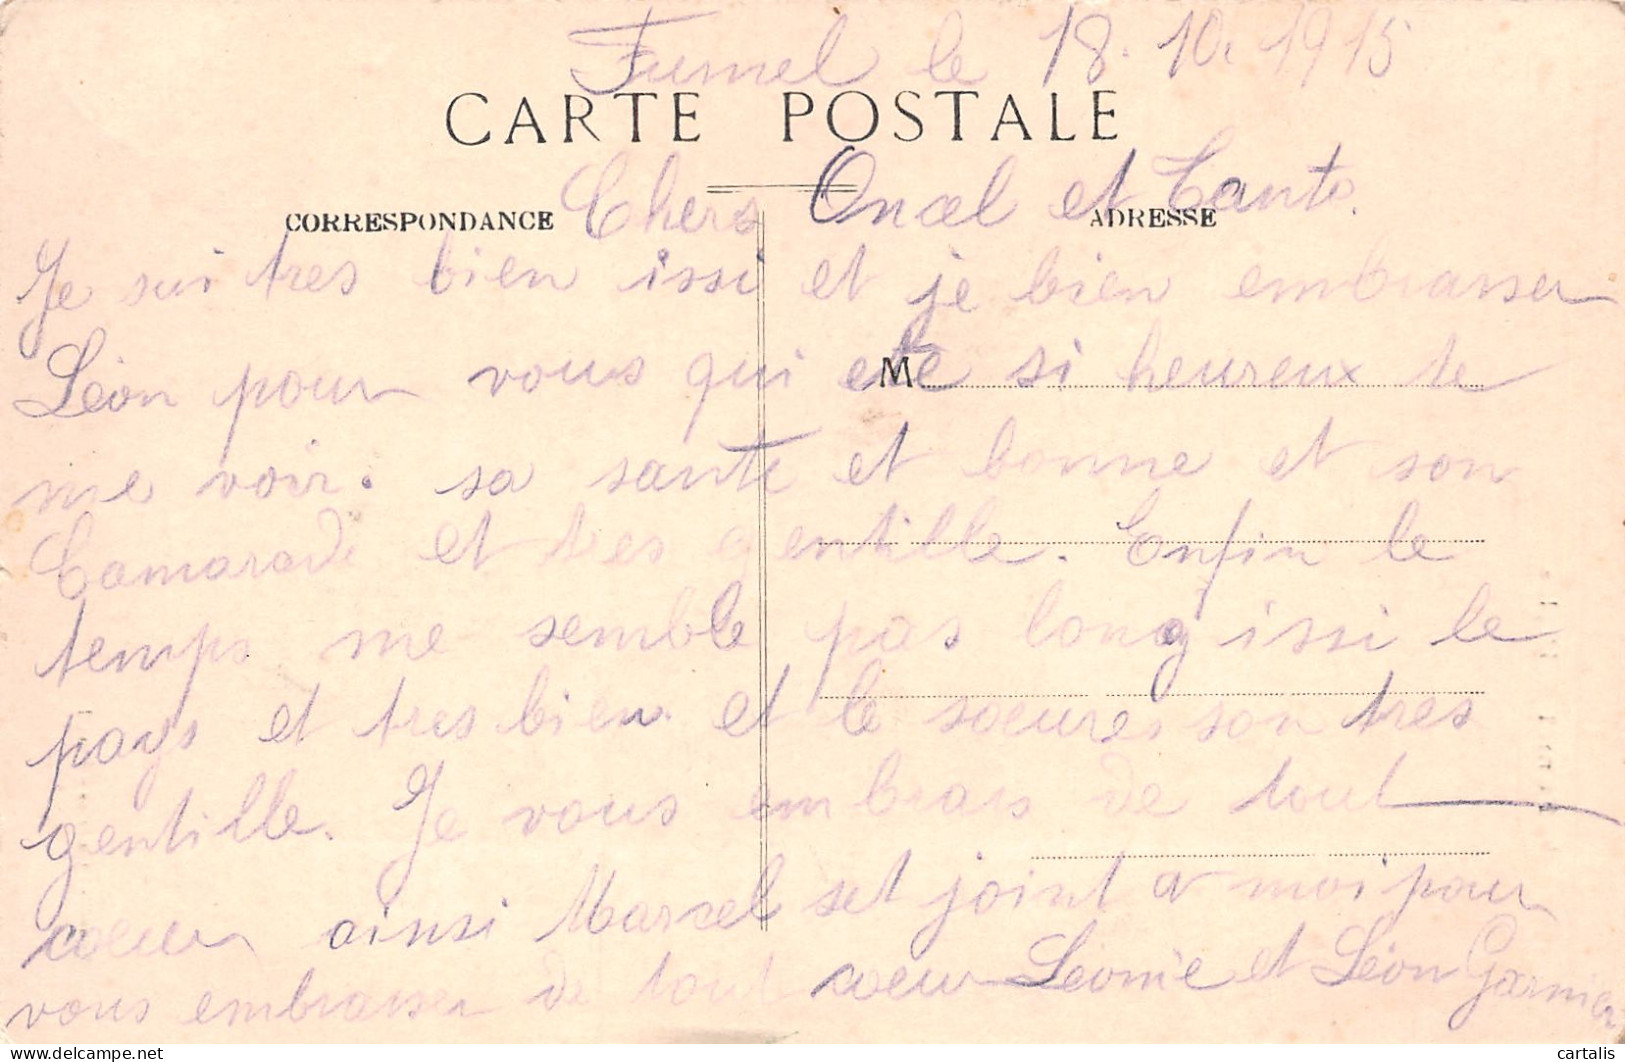 Fumel le 18.10.1915
CARTE POSTALE
Chers Oncel et Tante.
CORRESPONDANCE
ADRESSE
Je sui tres bien issi et je bien embrasser
Léon pour vous qui ete si heureux te
M
me voir. sa sante et bonne et son
Camarade et tres gentille. Enfin le
temps me semble pas long issi le
pays et tres bien et le soeures son tres
gentille. Je vous embrais de tout
coeur ainsi Marcel set joint a moi pour
vous embrasser de tout coeur Leonie et Léon Garnier
delcampe.net
cartalis